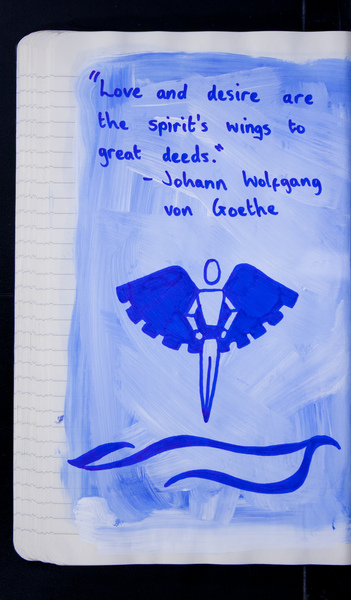 "Love and desire are
the spirit's wings to
great deeds."
- Johann Wolfgang
von Goethe